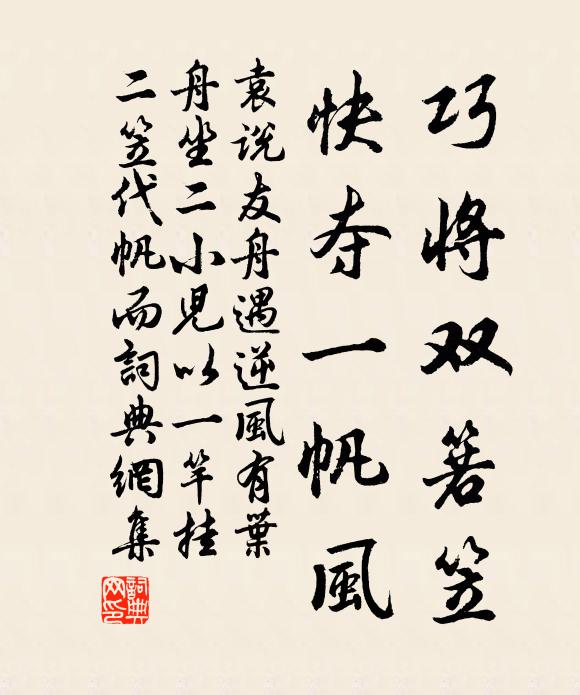 巧将双箬笠
快夺一帆風
袁说友舟遇逆風有葉
舟坐二小児以一竿挂
二笠代帆而詞典網集
詞典
网印